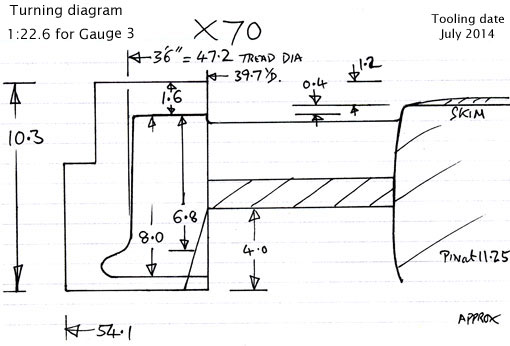 Turning diagram
1:22.6 for Gauge 3
X70
Tooling date
July 2014
3'6" = 47.2 TREAD DIA
39.7 I/D.
1.2
0.4
1.6
SKIM
10.3
6.8
8.0
4.0
PinAt 11.25
APPROX
54.1